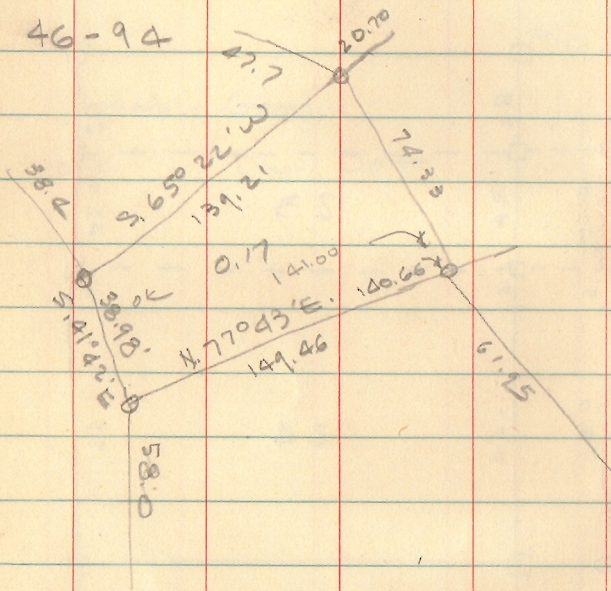 46-94
20.70
47.7
S. 65° 22' W
139.21
74.33
38.2
0.17
141.00
140.66
38.98' OK
S. 41° 42' E
N. 77° 43' E.
149.46
61.95
58.0